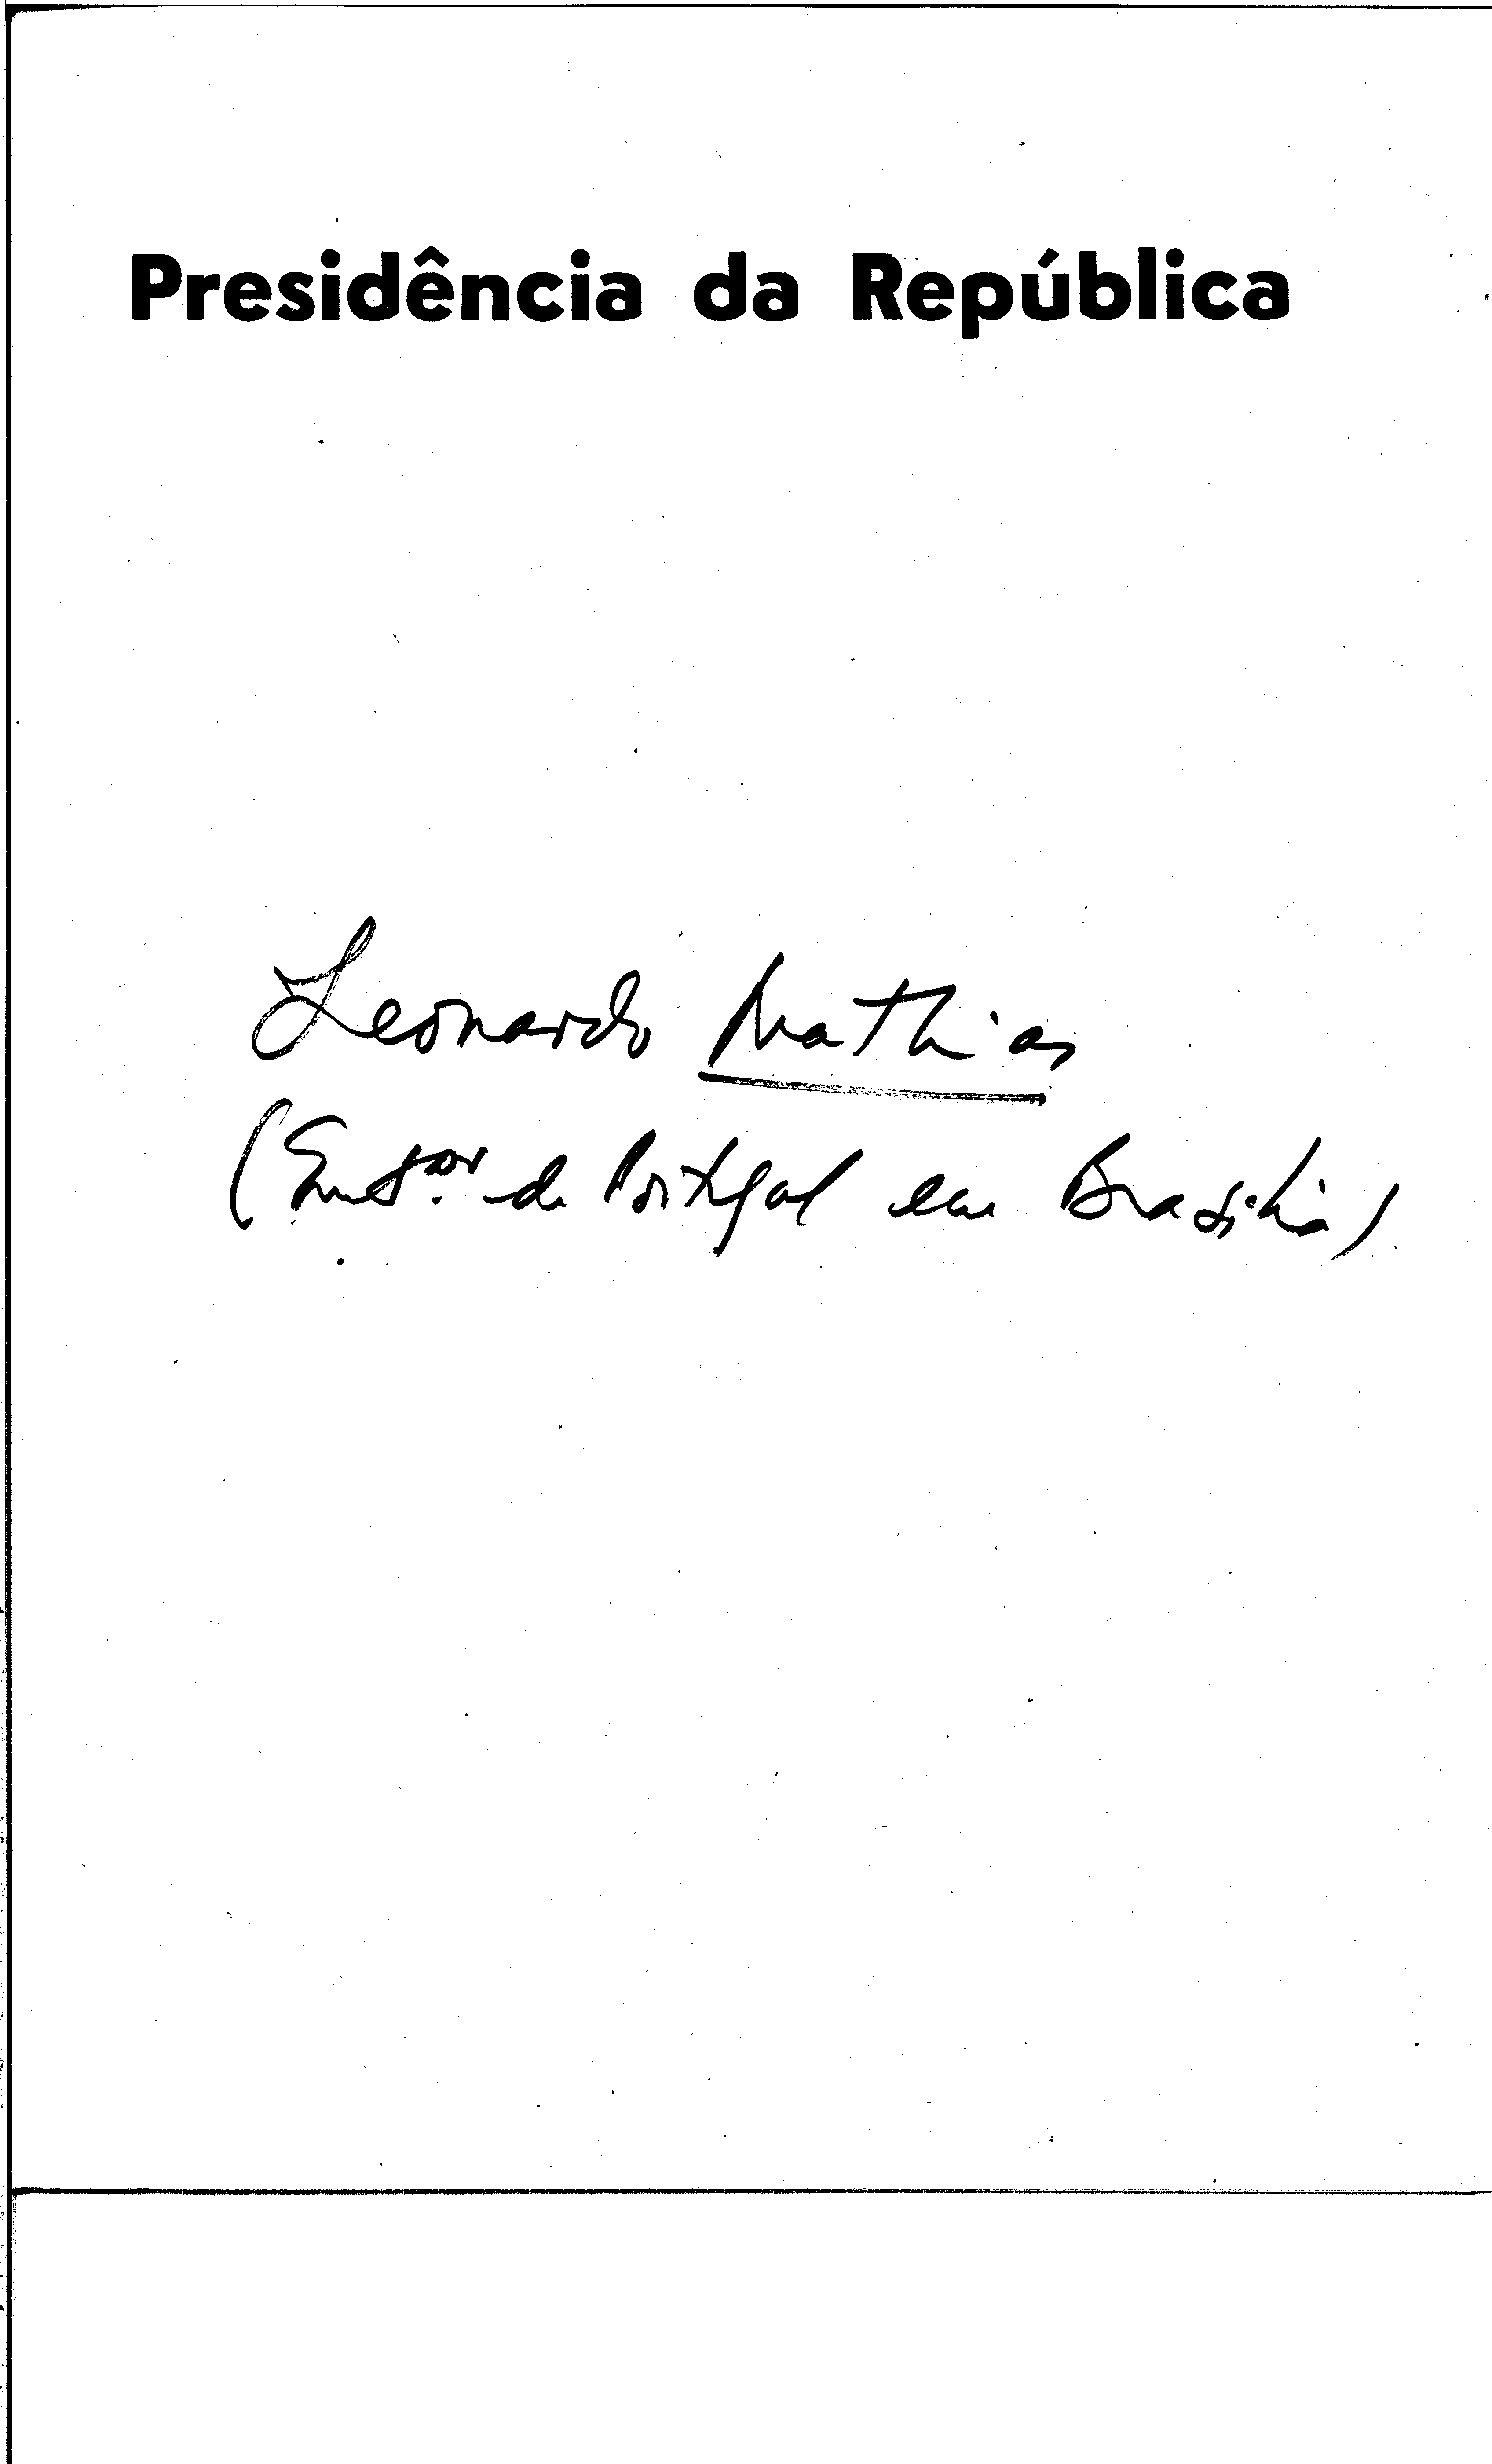 Presidência da República
Leonardo Mathias
(Emb.or de Portugal em Brasília)